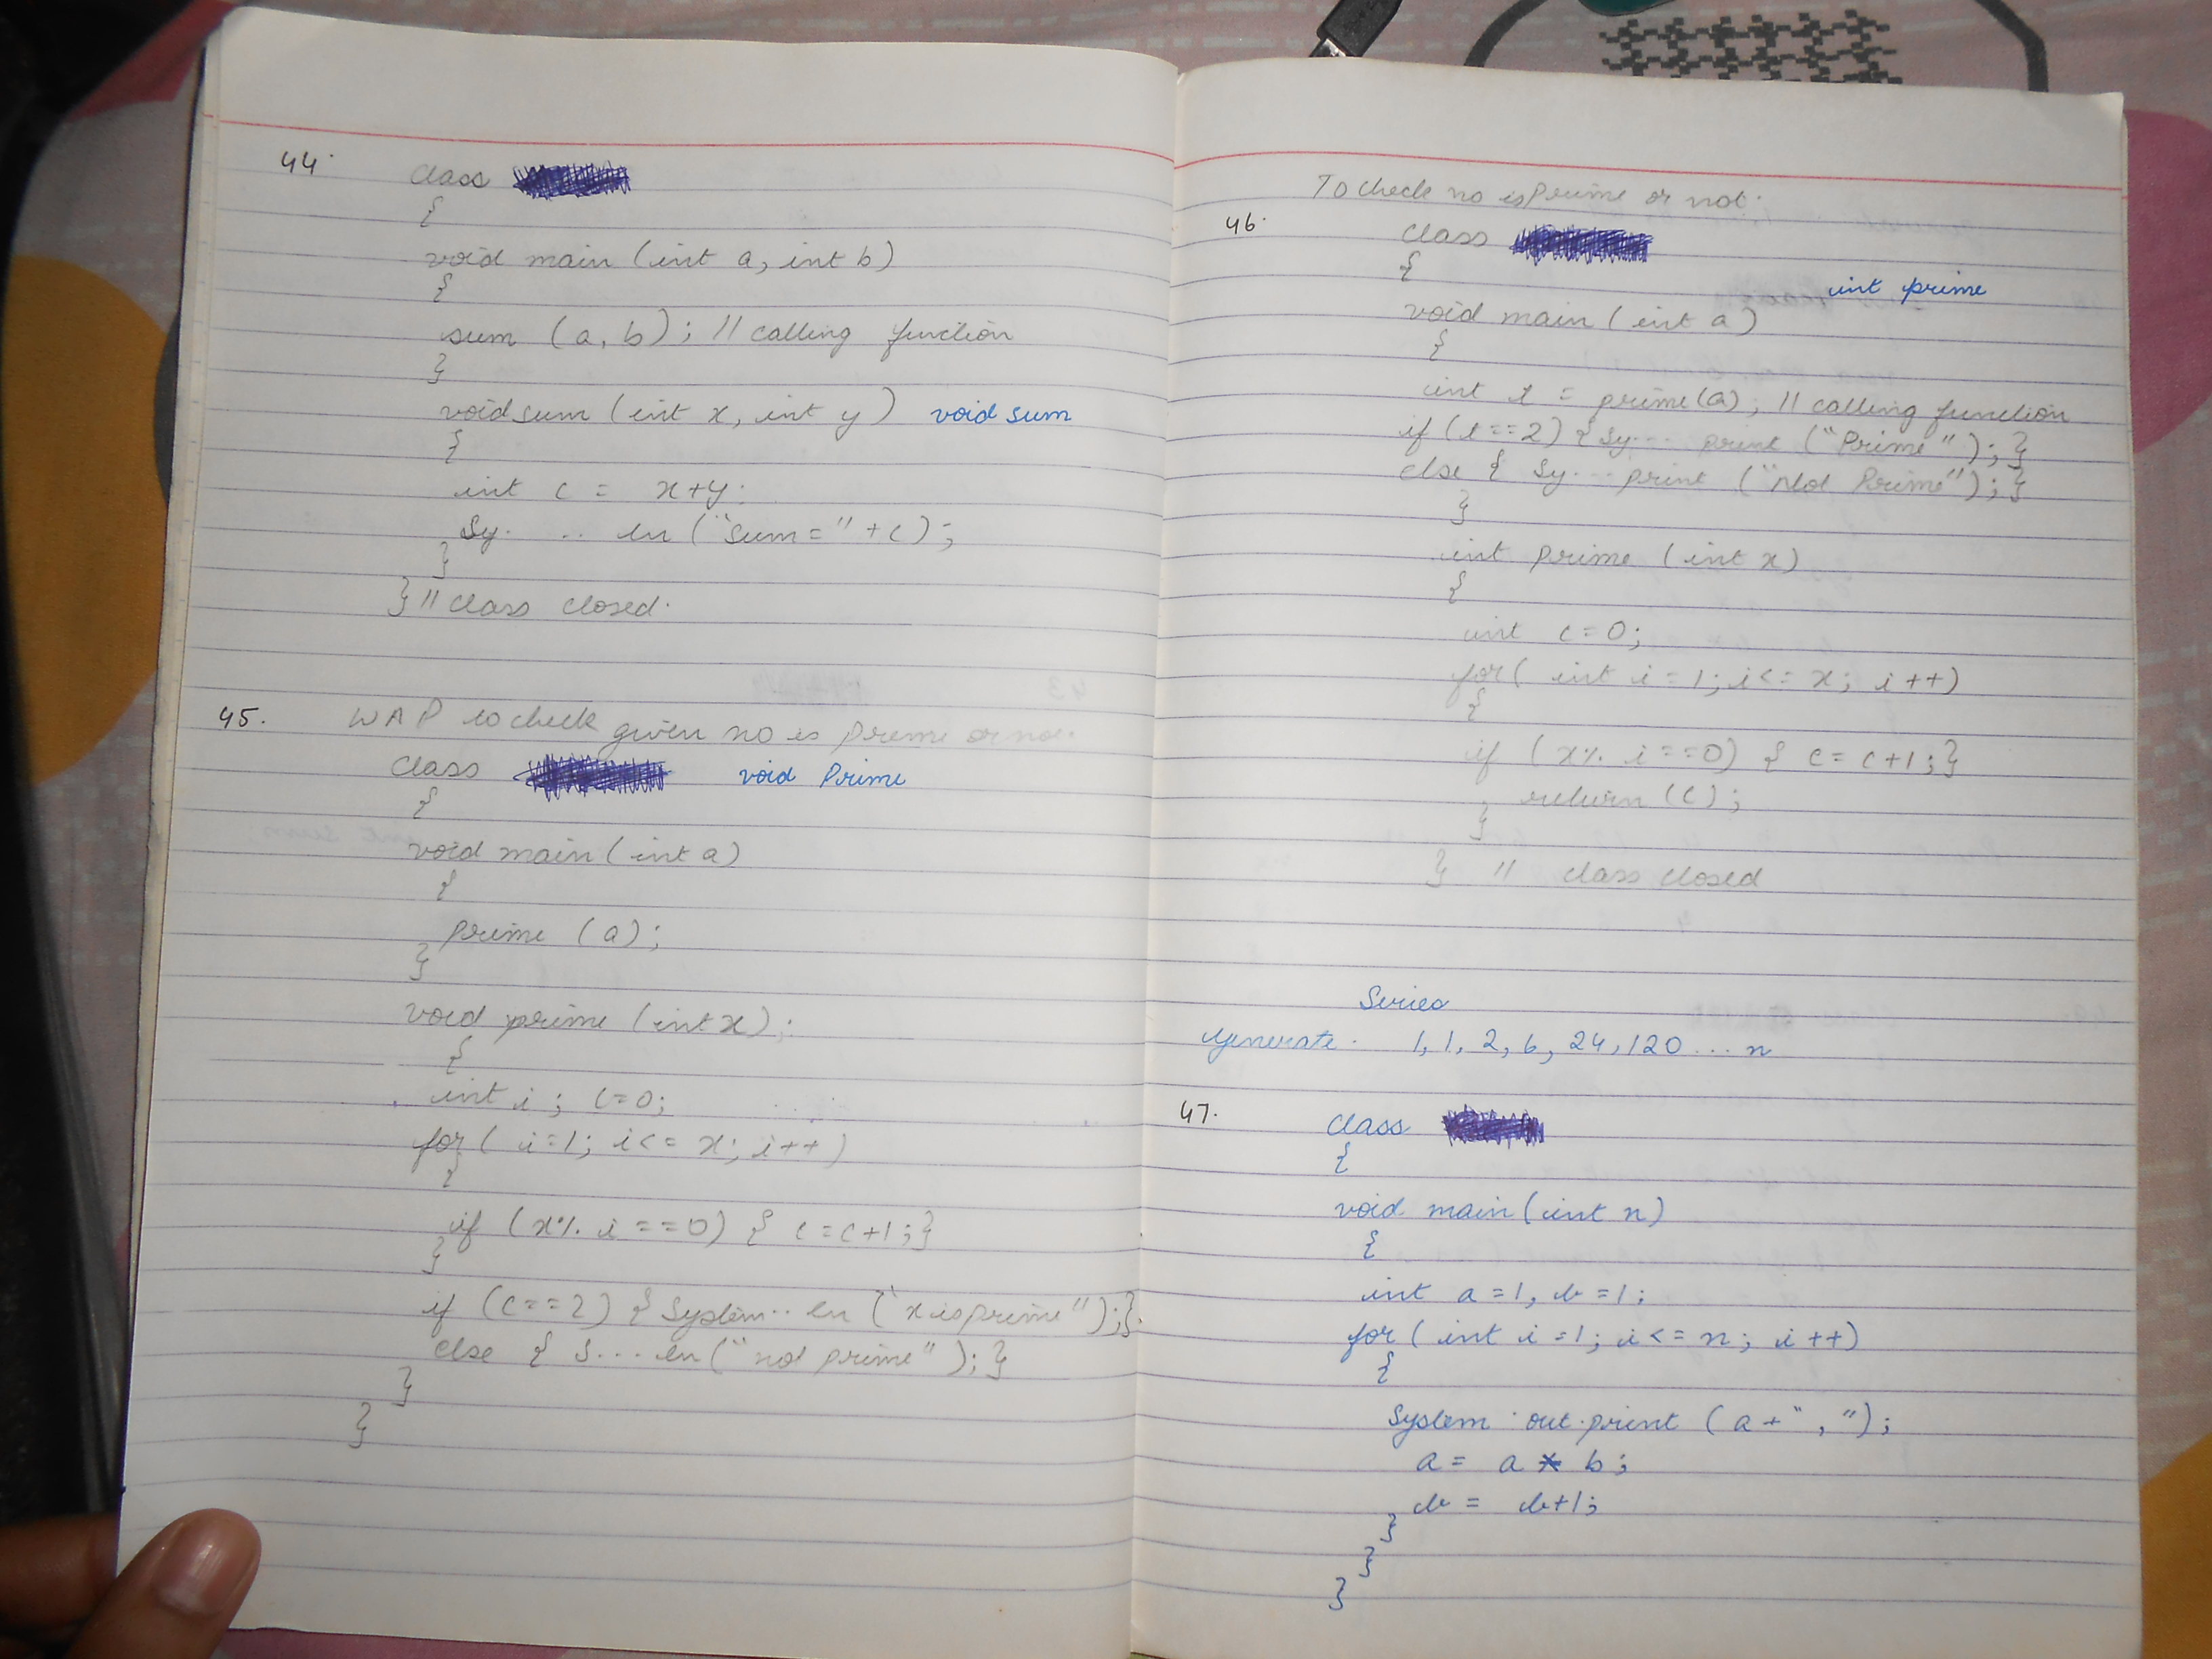 44.
class
{
void main (int a, int b)
{
sum (a, b); // calling function
}
void sum (int x, int y) void sum
{
int c = x+y;
Sy. .. ln ("Sum=" + c);
}
} // class closed.
45. WAP to check given no is prime or not.
class void Prime
{
void main (int a)
{
prime (a);
}
void prime (int x);
{
int i ; c=0;
for ( i=1; i<= x; i++)
{
if (x% i ==0) { c=c+1;}
}
if (c==2) { System.. ln ("x is prime");}
else { S... ln("not prime"); }
}
}
To check no is Prime or not.
46.
class
{
int prime
void main (int a)
{
int t = prime(a); // calling function
if (t==2) { Sy... print ("Prime"); }
else { Sy...print ("Not Prime"); }
}
int prime (int x)
{
int c=0;
for ( int i=1; i<= x; i++)
{
if (x% i==0) { c= c+1;}
return (c);
}
} // class closed
Series
generate. 1, 1, 2, 6, 24, 120 ... n
47. class
{
void main (int n)
{
int a=1, b=1;
for ( int i=1; i<= n; i++)
{
System.out.print (a+" , ");
a = a * b;
b = b+1;
}
}
}